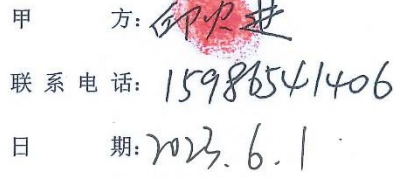 甲方:
联系电话: 15986541406
日期: 2023.6.1